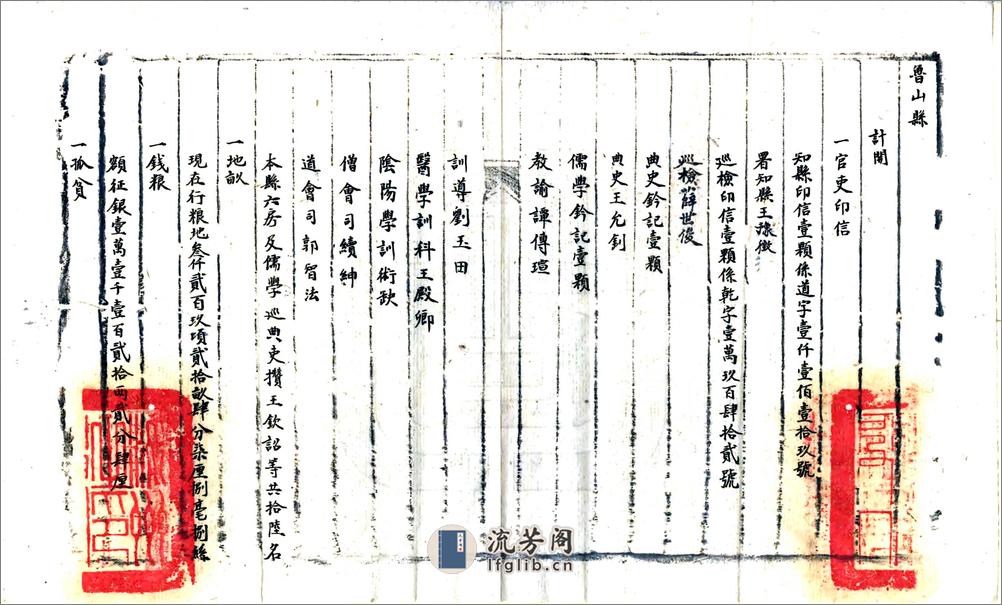 魯山縣
計開
一官吏印信
知縣印信壹顆係道字壹仟壹佰壹拾玖號
署知縣王
巡檢印信壹顆係乾字壹萬玖百肆拾貳號
巡檢薛世俊
典史鈐記壹顆
典史王允釗
儒學鈐記壹顆
教諭譚傳瑄
訓導劉玉田
醫學訓科王殿卿
陰陽學訓術缺
僧會司續紳
道會司郭智法
本縣六房及儒學巡典吏攢王欽詔等共拾陸名
一地畝
現在行粮地叁仟貳百玖頃貳拾畝肆分柒厘捌毫捌絲
一錢粮
額征銀壹萬壹千壹百貳拾兩貳分肆厘
一孤貧
流芳阁
lfglib.cn